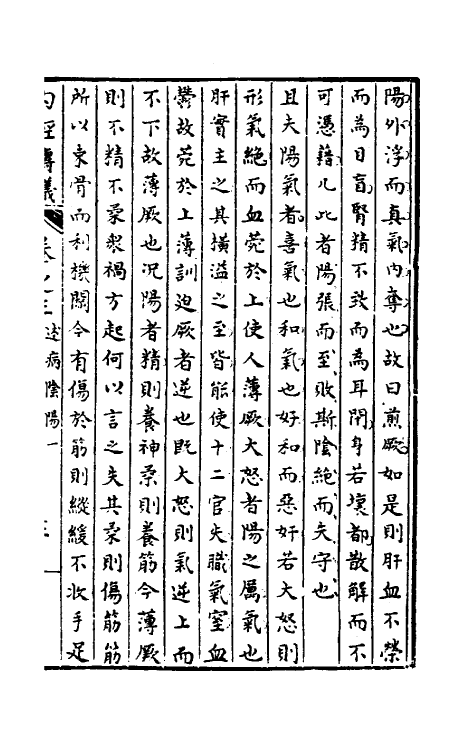 陽外浮而真氣內奪也故曰煎厥如是則肝血不榮
而為目盲腎精不致而為耳閉身若壞都散解而不
可憑藉凡此者陽張而至敗斯陰絕而失守也
且夫陽氣者喜氣也和氣也好和而惡奸若大怒則
形氣絕而血菀於上使人薄厥大怒者陽之厲氣也
肝實主之其橫溢之至皆能使十二官失職氣窒血
鬱故菀於上薄訓迫厥者逆也既大怒則氣逆上而
不下故薄厥也況陽者精則養神柔則養筋今薄厥
則不精不柔眾禍方起何以言之失其柔則傷筋筋
所以束骨而利機關今有傷於筋則縱緩不收手足
內經博議 卷之三 述病陰陽一 三